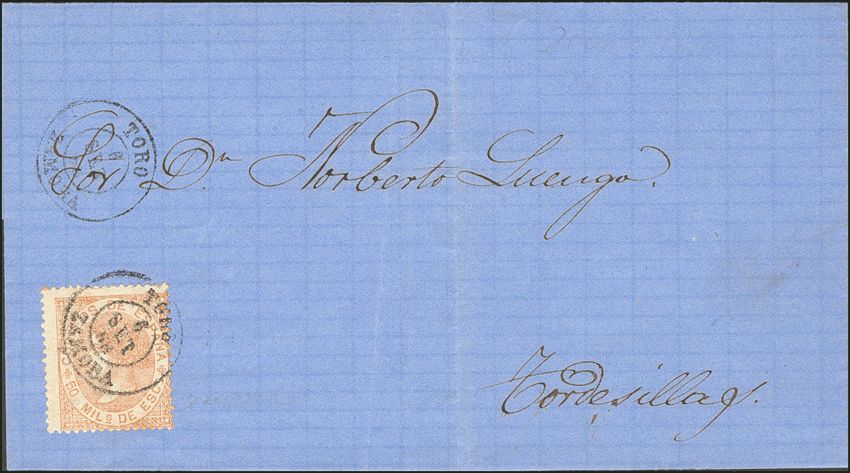 TORO
6
SET
ZAMORA
Sor Dn Norberto Luengo.
TORO
6
SET
ZAMORA
CORREOS DE ESPAÑA
50 MILS DE ESC
Tordesillas.